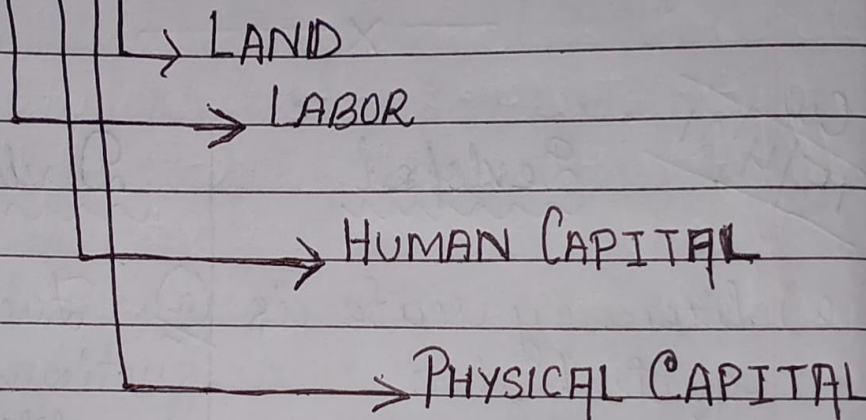 LAND
LABOR
HUMAN CAPITAL
PHYSICAL CAPITAL